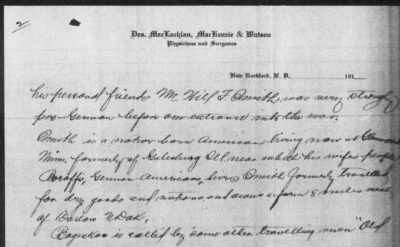 2
Drs. MacLachlan, MacKenzie & Watson
Physicians and Surgeons
New Rockford, N. D. 191
his personal friends Mr Will F. Smith was very strongly
pro-German before our entrance into the war.
Smith is a native born American living now at
Minn. formerly of Galesburg Ill near which his wife's people
German Americans, live. Smith formerly travelled
for dry goods and notions and owns a farm 8 miles
of Barlow N Dak.
is called by some other travelling men "Old